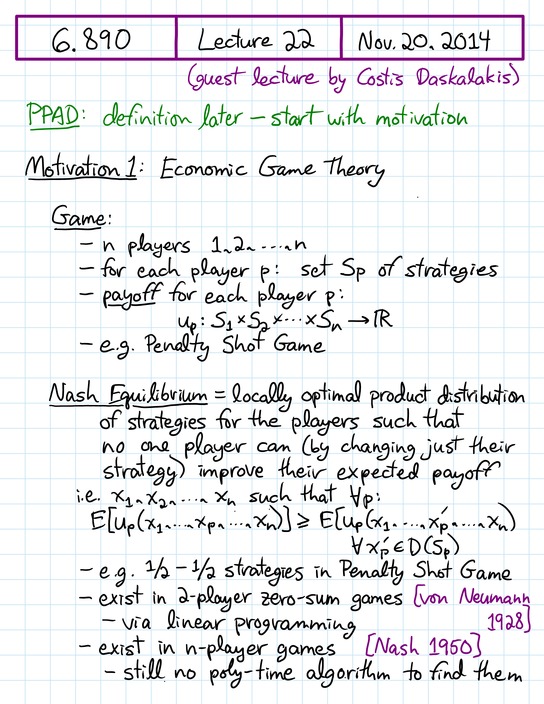 6.890 Lecture 22 Nov. 20, 2014
(guest lecture by Costis Daskalakis)
PPAD: definition later – start with motivation
Motivation 1: Economic Game Theory
Game:
– n players 1, 2, ..., n
– for each player p: set Sp of strategies
– payoff for each player p:
up: S1 × S2 × ··· × Sn → ℝ
– e.g. Penalty Shot Game
Nash Equilibrium = locally optimal product distribution
of strategies for the players such that
no one player can (by changing just their
strategy) improve their expected payoff
i.e. x1, x2, ..., xn such that ∀p:
E[up(x1, ..., xp, ..., xn)] ⩾ E[up(x1, ..., xp′, ..., xn)
∀ xp′ ∈ D(Sp)
– e.g. 1/2 – 1/2 strategies in Penalty Shot Game
– exist in 2-player zero-sum games [von Neumann
– via linear programming 1928]
– exist in n-player games [Nash 1950]
– still no poly-time algorithm to find them